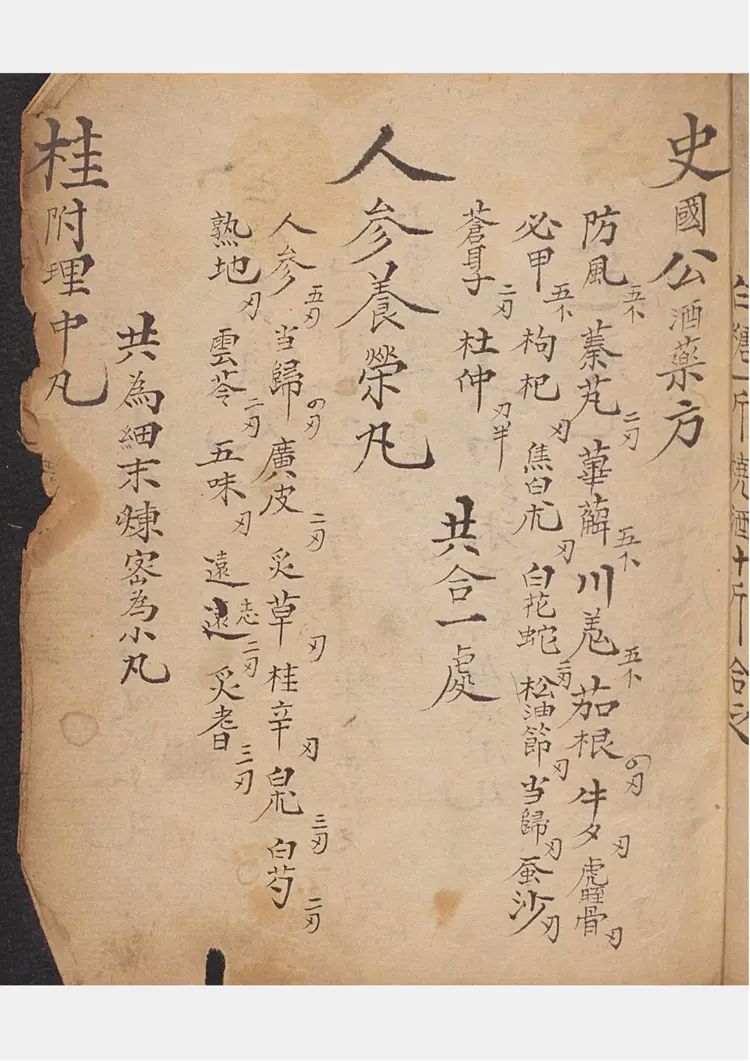 白糖一斤燒酒十斤合之
史國公酒藥方
防風五卜蓁艽二刃萆薢五卜川羌五卜茄根の刃牛夕刃虎脛骨刃
必甲五卜枸杞刃焦白朮刃白花蛇二刃松油節刃当歸刃蚕沙刃
蒼耳子二刃杜仲刃半
共合一處
人参養榮丸
人参五刃当歸の刃廣皮二刃炙草刃桂辛刃白朮三刃白芍二刃
熟地刃雲苓二刃五味刃遠遠志二刃炙耆三刃
共為細末煉密為小丸
桂附理中丸